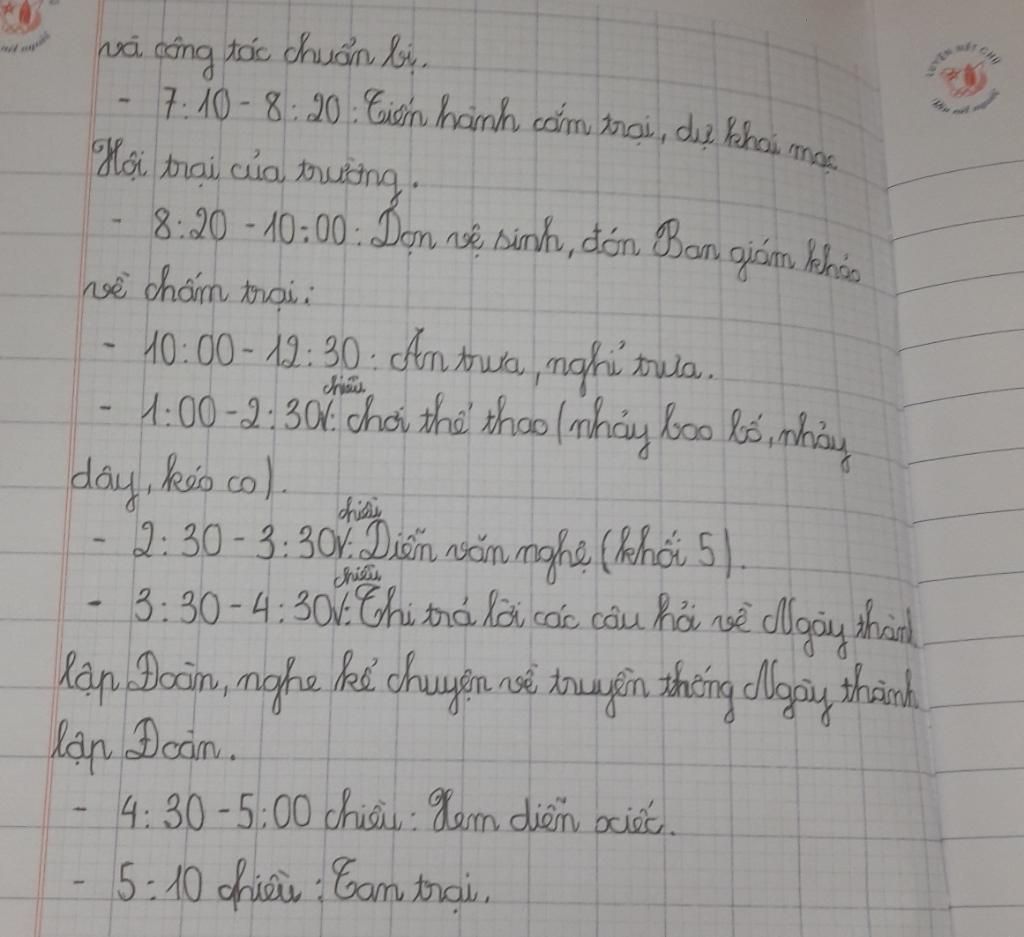 và công tác chuẩn bị.
- 7:10 - 8:20: Tiến hành cắm trại, dự khai mạc
Hội trại của trường.
- 8:20 - 10:00: Dọn vệ sinh, đón Ban giám khảo
về chấm trại:
- 10:00 - 12:30: Ăn trưa, nghỉ trưa.
chiều
- 1:00 - 2:30V: chơi thể thao (nhảy bao bố, nhảy
dây, kéo co).
chiều
- 2:30 - 3:30V: Diễn văn nghệ (khối 5).
chiều
- 3:30 - 4:30V: Thi trả lời các câu hỏi về Ngày thành
lập Đoàn, nghe kể chuyện về truyền thống Ngày thành
lập Đoàn.
- 4:30 - 5:00 chiều: Xem diễn xiếc.
- 5:10 chiều: Tan trại.
LUYỆN NÉT CHỮ
Rèn nết người
nết người